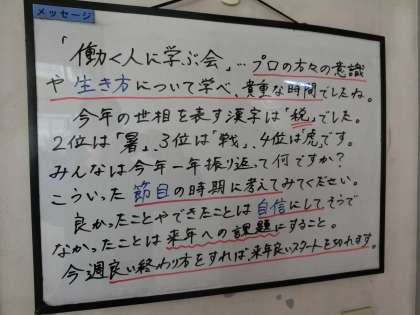 メッセージ
「働く人に学ぶ会」…プロの方々の意識
や生き方について学べ、貴重な時間でしたね。
今年の世相を表す漢字は「税」でした。
2位は「暑」、3位は「戦」、4位は虎です。
みんなは今年一年振り返って何ですか?
こういった節目の時期に考えてみてください。
良かったことやできたことは自信にして、そうで
なかったことは来年への課題にすること。
今週良い終わり方をすれば、来年良いスタートを切れます。